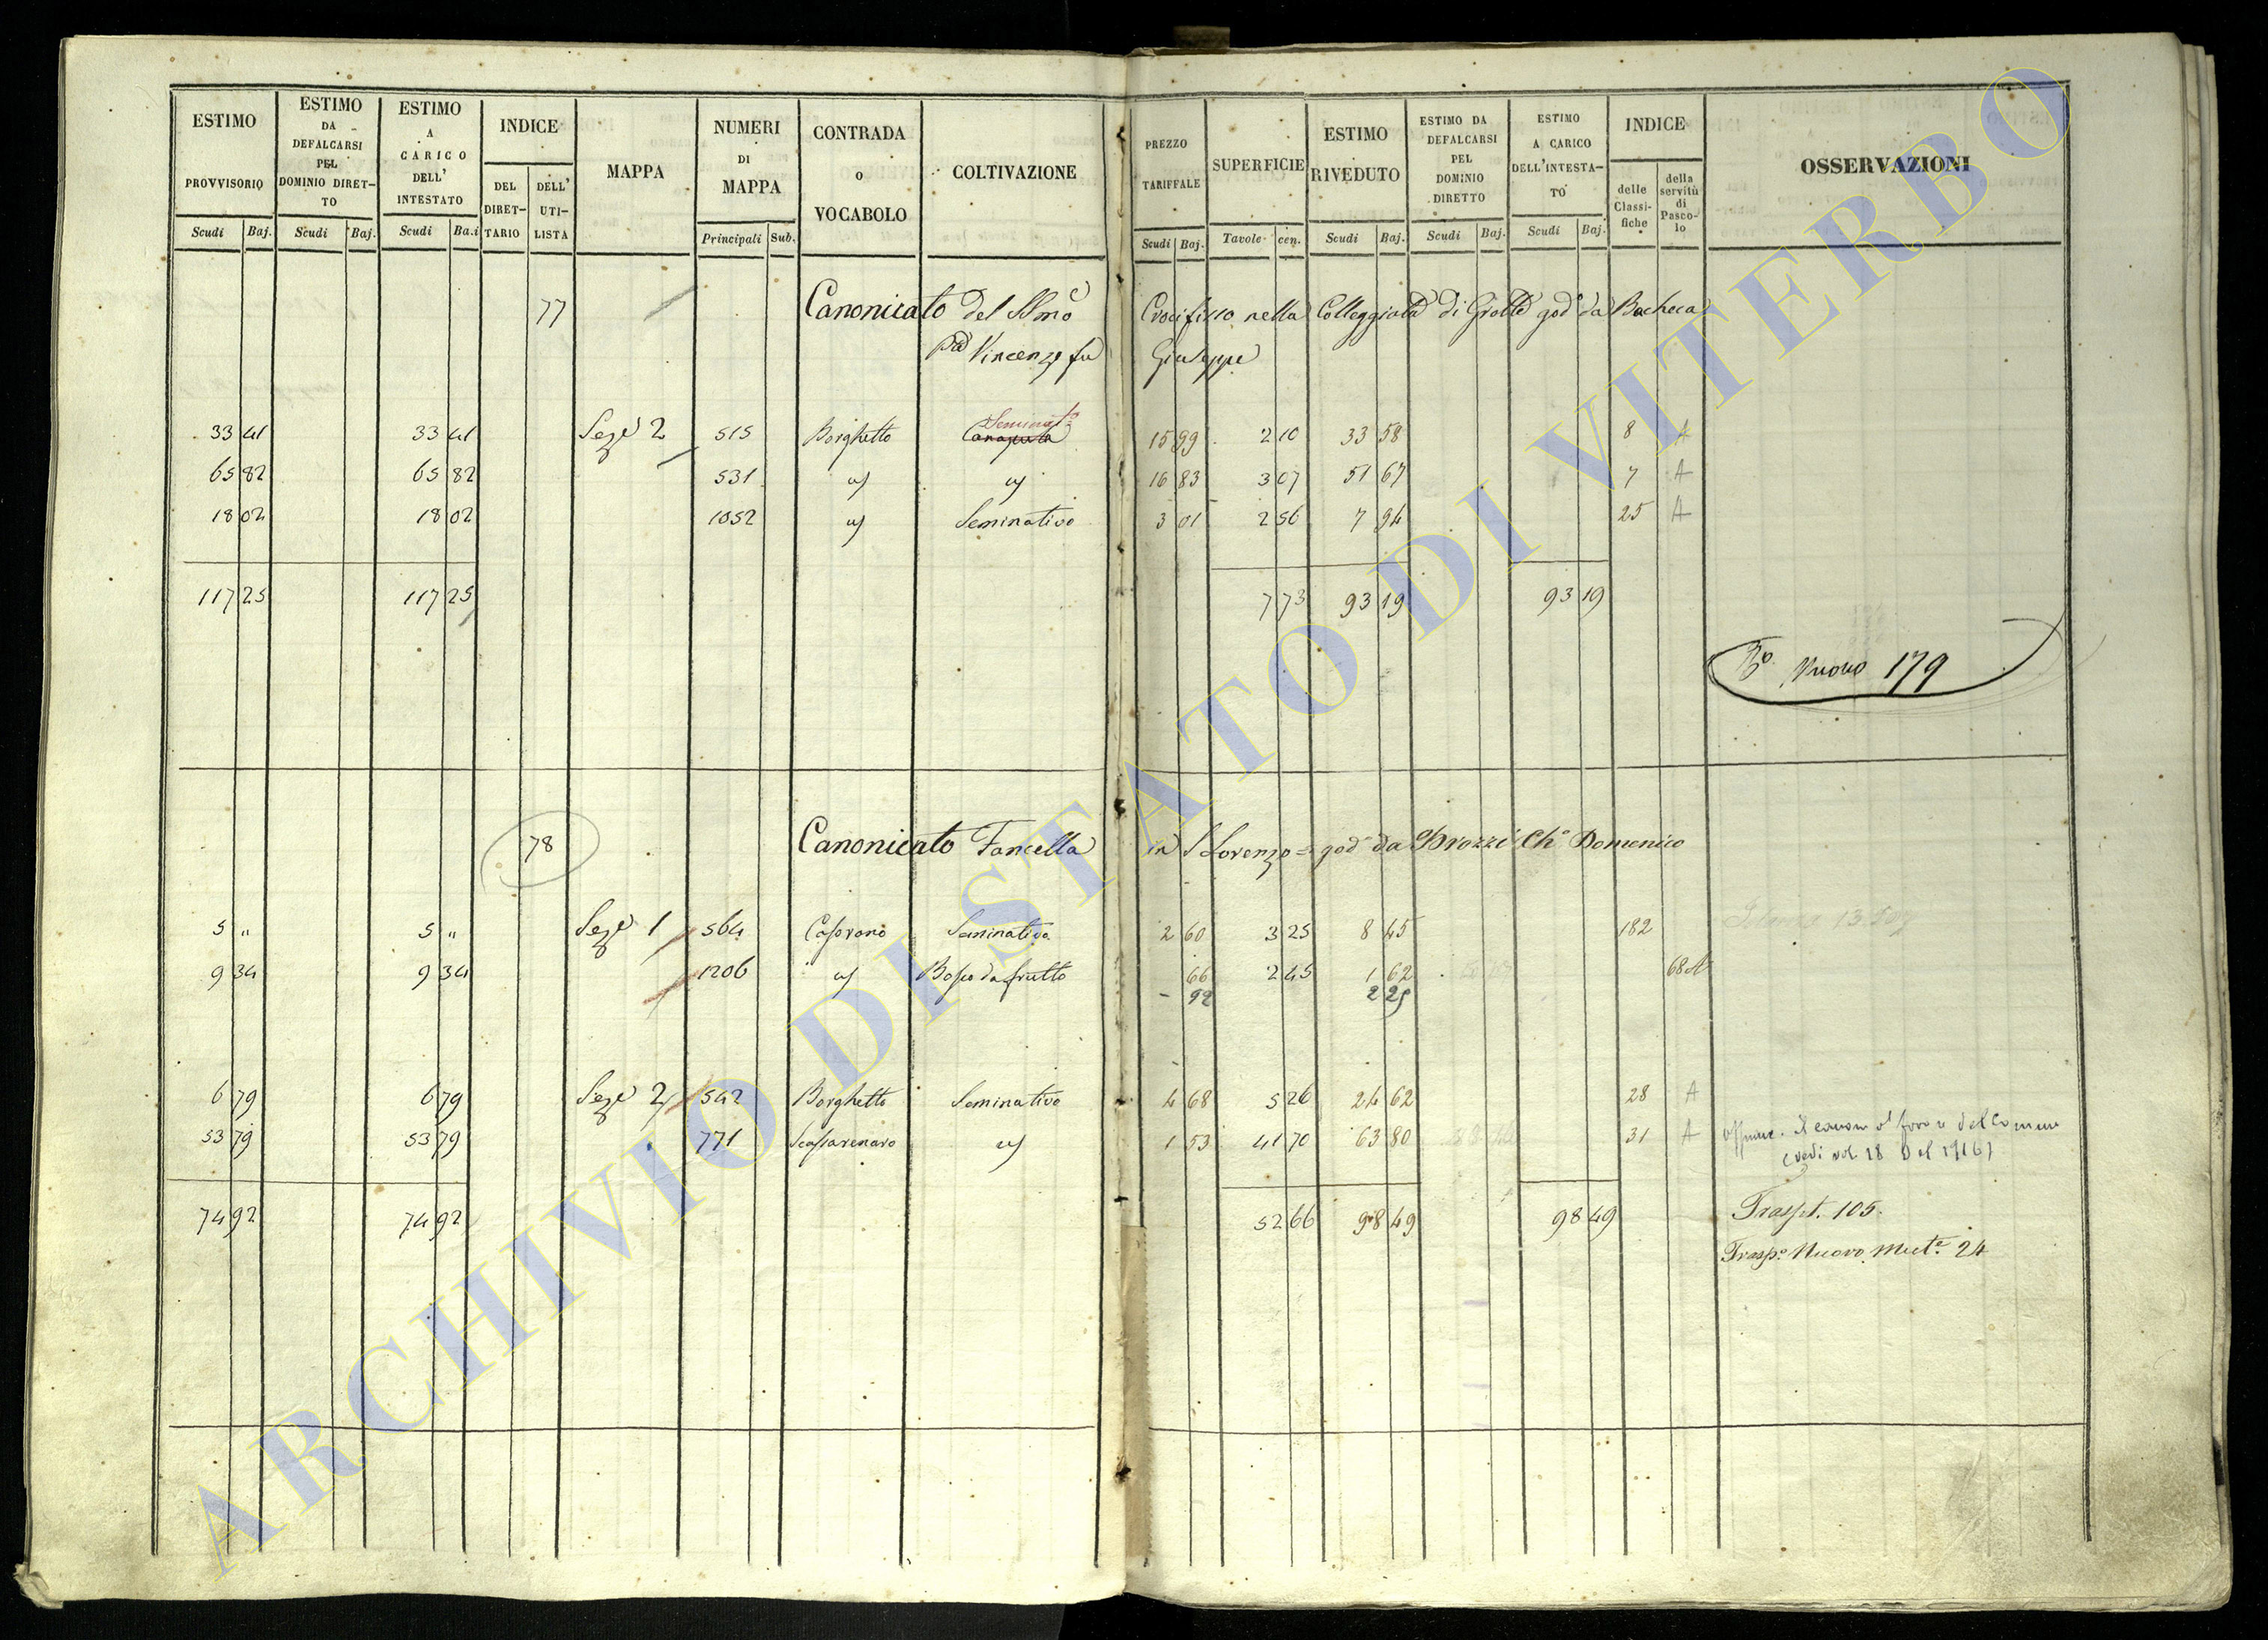 ESTIMO PROVVISORIO Scudi Baj.
ESTIMO DA DEFALCARSI PEL DOMINIO DIRET-TO Scudi Baj.
ESTIMO A CARICO DELL' INTESTATO Scudi Ba.i
INDICE DEL DIRET-TARIO DELL' UTI-LISTA
MAPPA
NUMERI DI MAPPA Principali Sub.
CONTRADA o VOCABOLO
COLTIVAZIONE
PREZZO TARIFFALE Scudi Baj.
SUPERFICIE Tavole cen.
ESTIMO RIVEDUTO Scudi Baj.
ESTIMO DA DEFALCARSI PEL DOMINIO DIRETTO Scudi Baj.
ESTIMO A CARICO DELL'INTESTA-TO Scudi Baj.
INDICE delle Classi-fiche della servitù di Pasco-lo
OSSERVAZIONI
77 Canonicato del SSmo Crocifisso nella Colleggiata di Grotte god da Bacheca
Vincenzo fu Giuseppe
33 41 33 41 Seze 2 515 Borghetto Seminato 15 99 2 10 33 58 8 A
65 82 65 82 531 16 83 3 07 51 67 7 A
18 02 18 02 1052 Seminativo 3 01 2 56 7 94 25 A
117 25 117 25 7 73 93 19 93 19
Nuovo 179
78 Canonicato Fancella in S Lorenzo = god da Ch° Domenico
5 " 5 " Seze 1 564 Seminativo 2 60 3 25 8 45 182
9 34 9 34 1206 Bosco da frutto 66 2 45 1 62 68 A
- 92 2 25
6 79 6 79 Seze 2 542 Borghetto Seminativo 4 68 5 26 24 62 28 A
53 79 53 79 771 1 53 41 70 63 80 31 A il canone a favore del Comune
(vedi vol. 18 del 1916)
74 92 74 92 52 66 98 49 98 49 Traspt. 105.
Trasp° Nuovo 24
ARCHIVIO DI STATO DI VITERBO